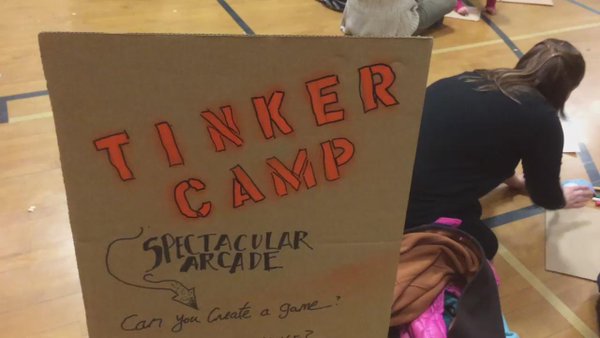 TINKER
CAMP
SPECTACULAR
ARCADE
Can you Create a game?